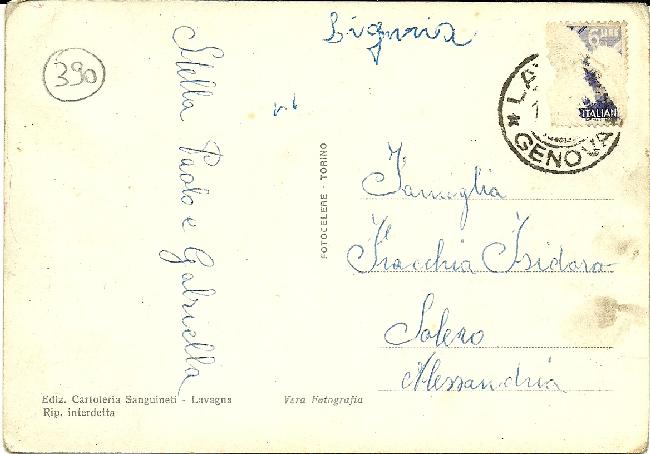 Liguria
390
6 LIRE
ITALIAN
LA
GENOVA
Stella Paolo e Gabriella
FOTOCELERE - TORINO
Famiglia
Fracchia Isidoro
Solero
Alessandria
Ediz. Cartoleria Sanguineti - Lavagna
Rip. interdetta
Vera Fotografia